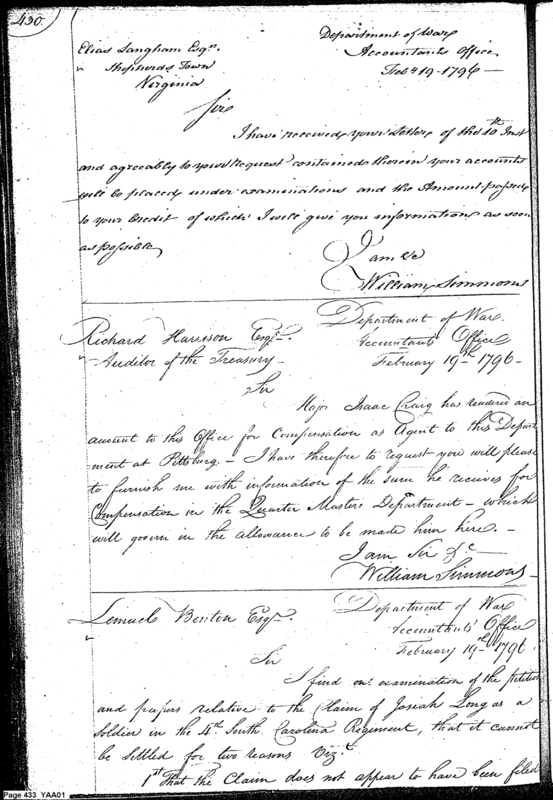 430
Department of War
Accountants Office
Feby 19. 1796 —
Elias Langham Esqr.
Shepherds Town
Virginia
Sir
I have received your Letter of the 10th Inst
and agreeably to your Request contained therein your accounts
will be placed under examination and the Amount passed
to your Credit of which I will give you information as soon
as possible
I am &c
William Simmons
Department of War
Accountants Office
February 19th 1796 —
Richard Harrison Esqr.
Auditor of the Treasury —
Sir
Major Isaac Craig has rendered an
account to this Office for Compensation as Agent to this Depart
ment at Pittsburg. — I have therefore to request you will please
to furnish me with information of the sum he receives for
Compensation in the Quarter Masters Department — which
will govern in the allowance to be made him here. —
I am Sir &c
William Simmons —
Department of War
Accountants' Office
February 19th 1796.
Lemuel Benton Esqr.
Sir
I find on examination of the petition
and papers relative to the Claim of Josiah Long as a
Soldier in the 4th South Carolina Regiment, that it cannot
be settled for two reasons Vizt.
1st That the Claim does not appear to have been filed
Page 433 YAA01